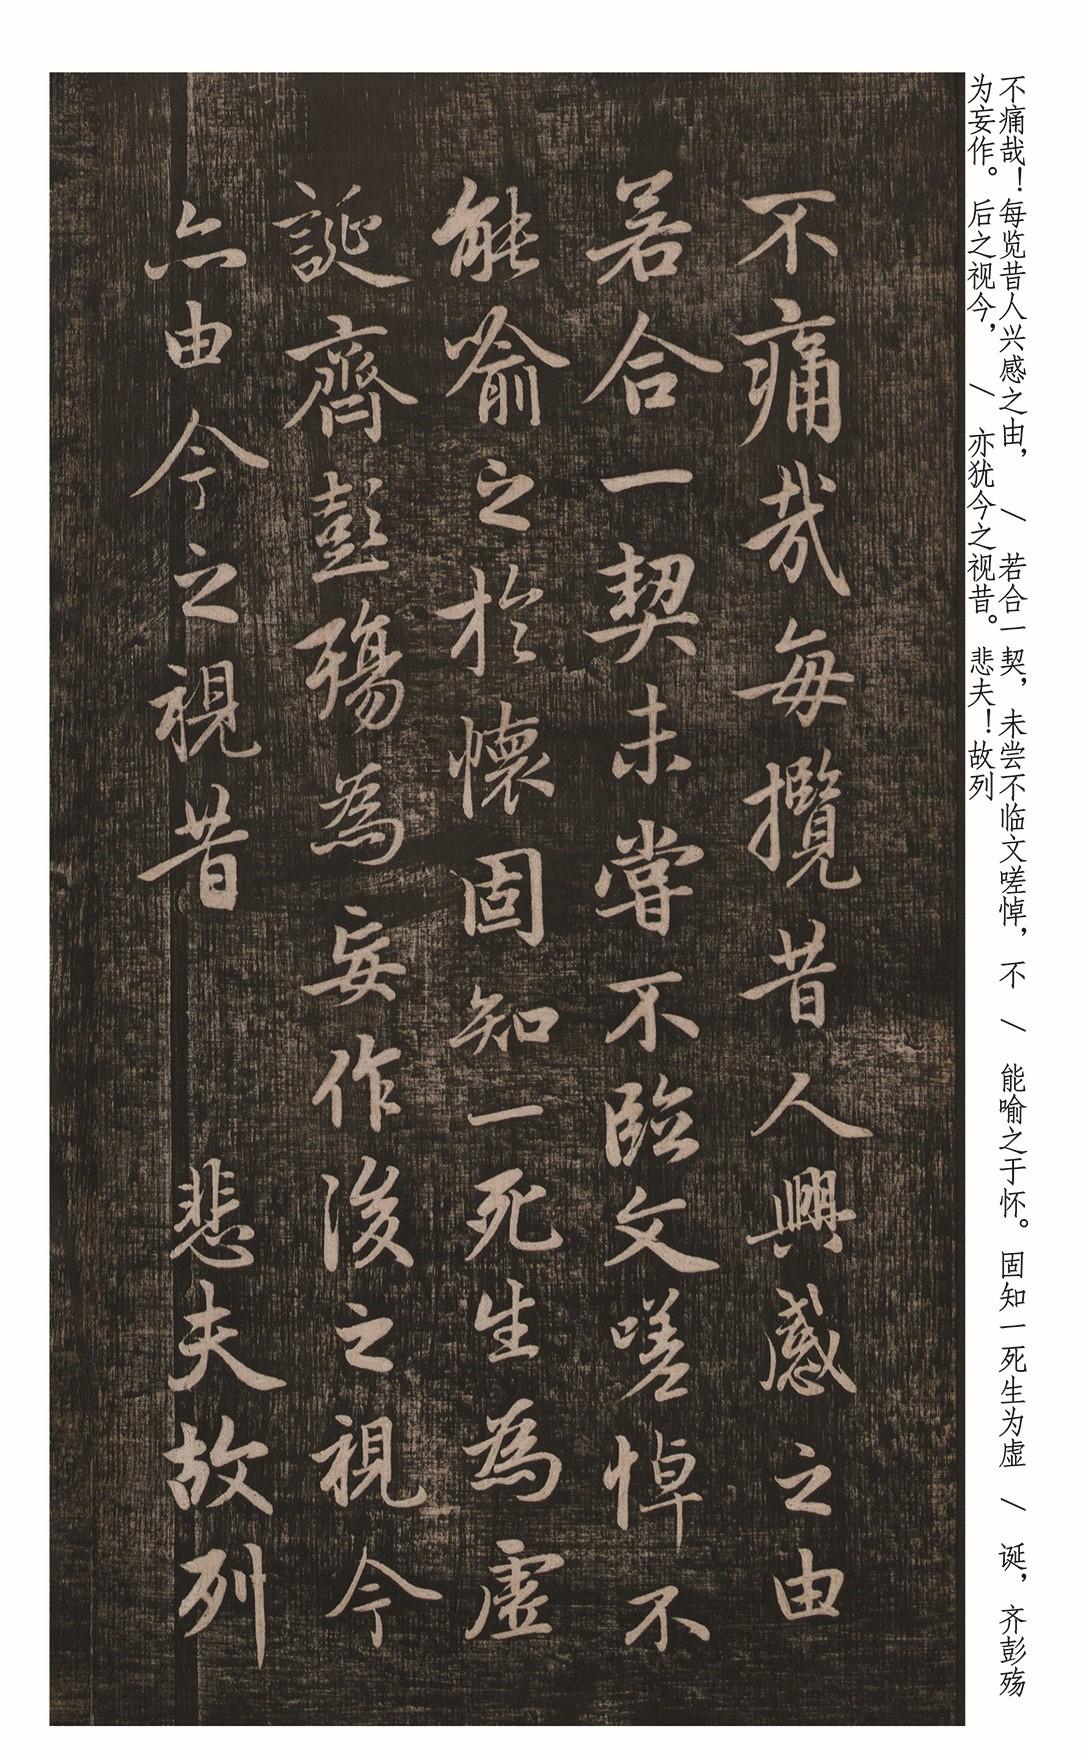 不痛哉！每览昔人兴感之由， / 若合一契，未尝不临文嗟悼，不 / 能喻之于怀。固知一死生为虚 / 诞，齐彭殇
为妄作。后之视今， / 亦犹今之视昔。悲夫！故列
不痛哉每攬昔人興感之由
若合一契未嘗不臨文嗟悼不
能喻之於懷固知一死生為虛
誕齊彭殤為妄作後之視今
亦由今之視昔 悲夫故列